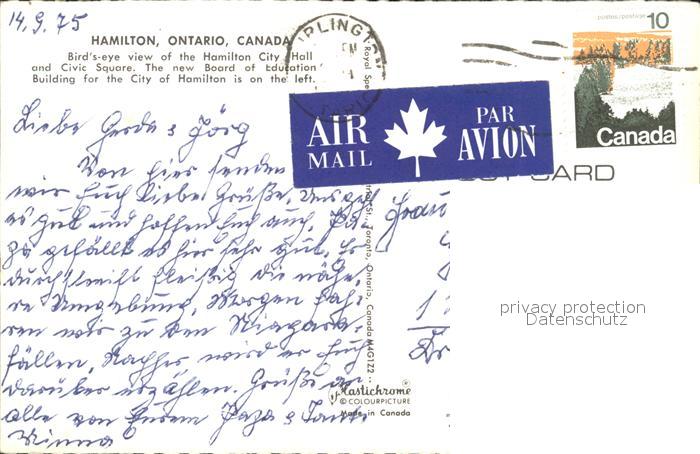 14.9.75
HAMILTON, ONTARIO, CANADA
Bird's-eye view of the Hamilton City Hall
and Civic Square. The new Board of Education
Building for the City of Hamilton is on the left.
postes/postage 10
Canada
AIR MAIL
PAR AVION
CARD
Liebe Gerda & Jörg
Von hier senden
wir Euch Liebe Grüße. Uns geht
es gut und hoffen Euch auch. Pa-
pa gefällt es hier sehr gut. Er
durchstreift fleißig die nähe-
re Umgebung. Morgen fah-
ren wir zu den Niagara-
fällen. Nachher wird er Euch
darüber erzählen. Grüße an
alle von Eurem Papa & Tante
Minna
Frau
Toronto, Ontario, Canada M4G1Z2
Plastichrome
© COLOURPICTURE
Made in Canada
privacy protection
Datenschutz